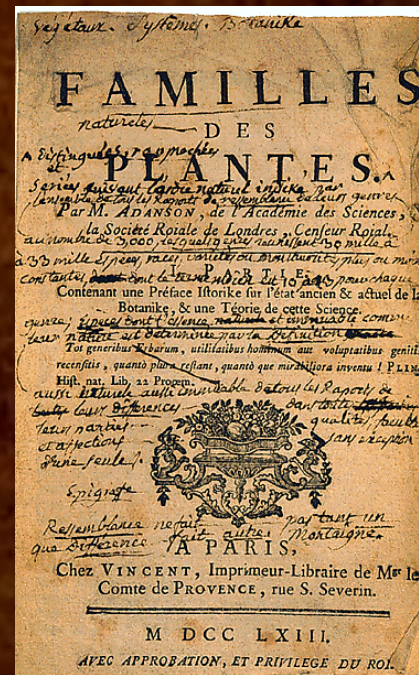 Vegetaux. Systemes. Botanike
FAMILLES
natureles
DES
distinguées, raprochées
PLANTES.
et
Series suivant l'ordre naturel indiké par
l'ensemble de tous les Raports de ressemblance de leurs genres
Par M. ADANSON, de l'Académie des Sciences,
la Société Roiale de Londres, Censeur Roial.
au nombre de 3,000, lesquels genres réunissent 30 mille à
33 mille Especes, races, variétés ou monstruosités, plus ou moins
I. PARTIE.
constantes, dont le terme moien est 10 à 13 pour chaque
Contenant une Préface Istorike sur l'état ancien & actuel de la
Botanike, & une Téorie de cette Science.
genre; especes dont l'essence et immuable comme
leur nature est determinée par la Definition
Tot generibus Erbarum, utilitatibus hominum aut voluptatibus genitis
recensitis, quantò plura restant, quantò que mirabiliora inventu ! PLIN.
Hist. nat. Lib, 22 Proœm.
aussi naturele, aussi immuable de tous les Raports de
toutes leurs Differences dans toutes
leurs parties qualités, facultés
et affections sans exception
d'une seule.
Epigrafe
Ressemblance ne fait pas tant un
que Difference fait autre. Montaigne.
A PARIS,
Chez VINCENT, Imprimeur-Libraire de Mgr le
Comte de PROVENCE, rue S. Severin.
M DCC LXIII.
AVEC APPROBATION, ET PRIVILEGE DU ROI.